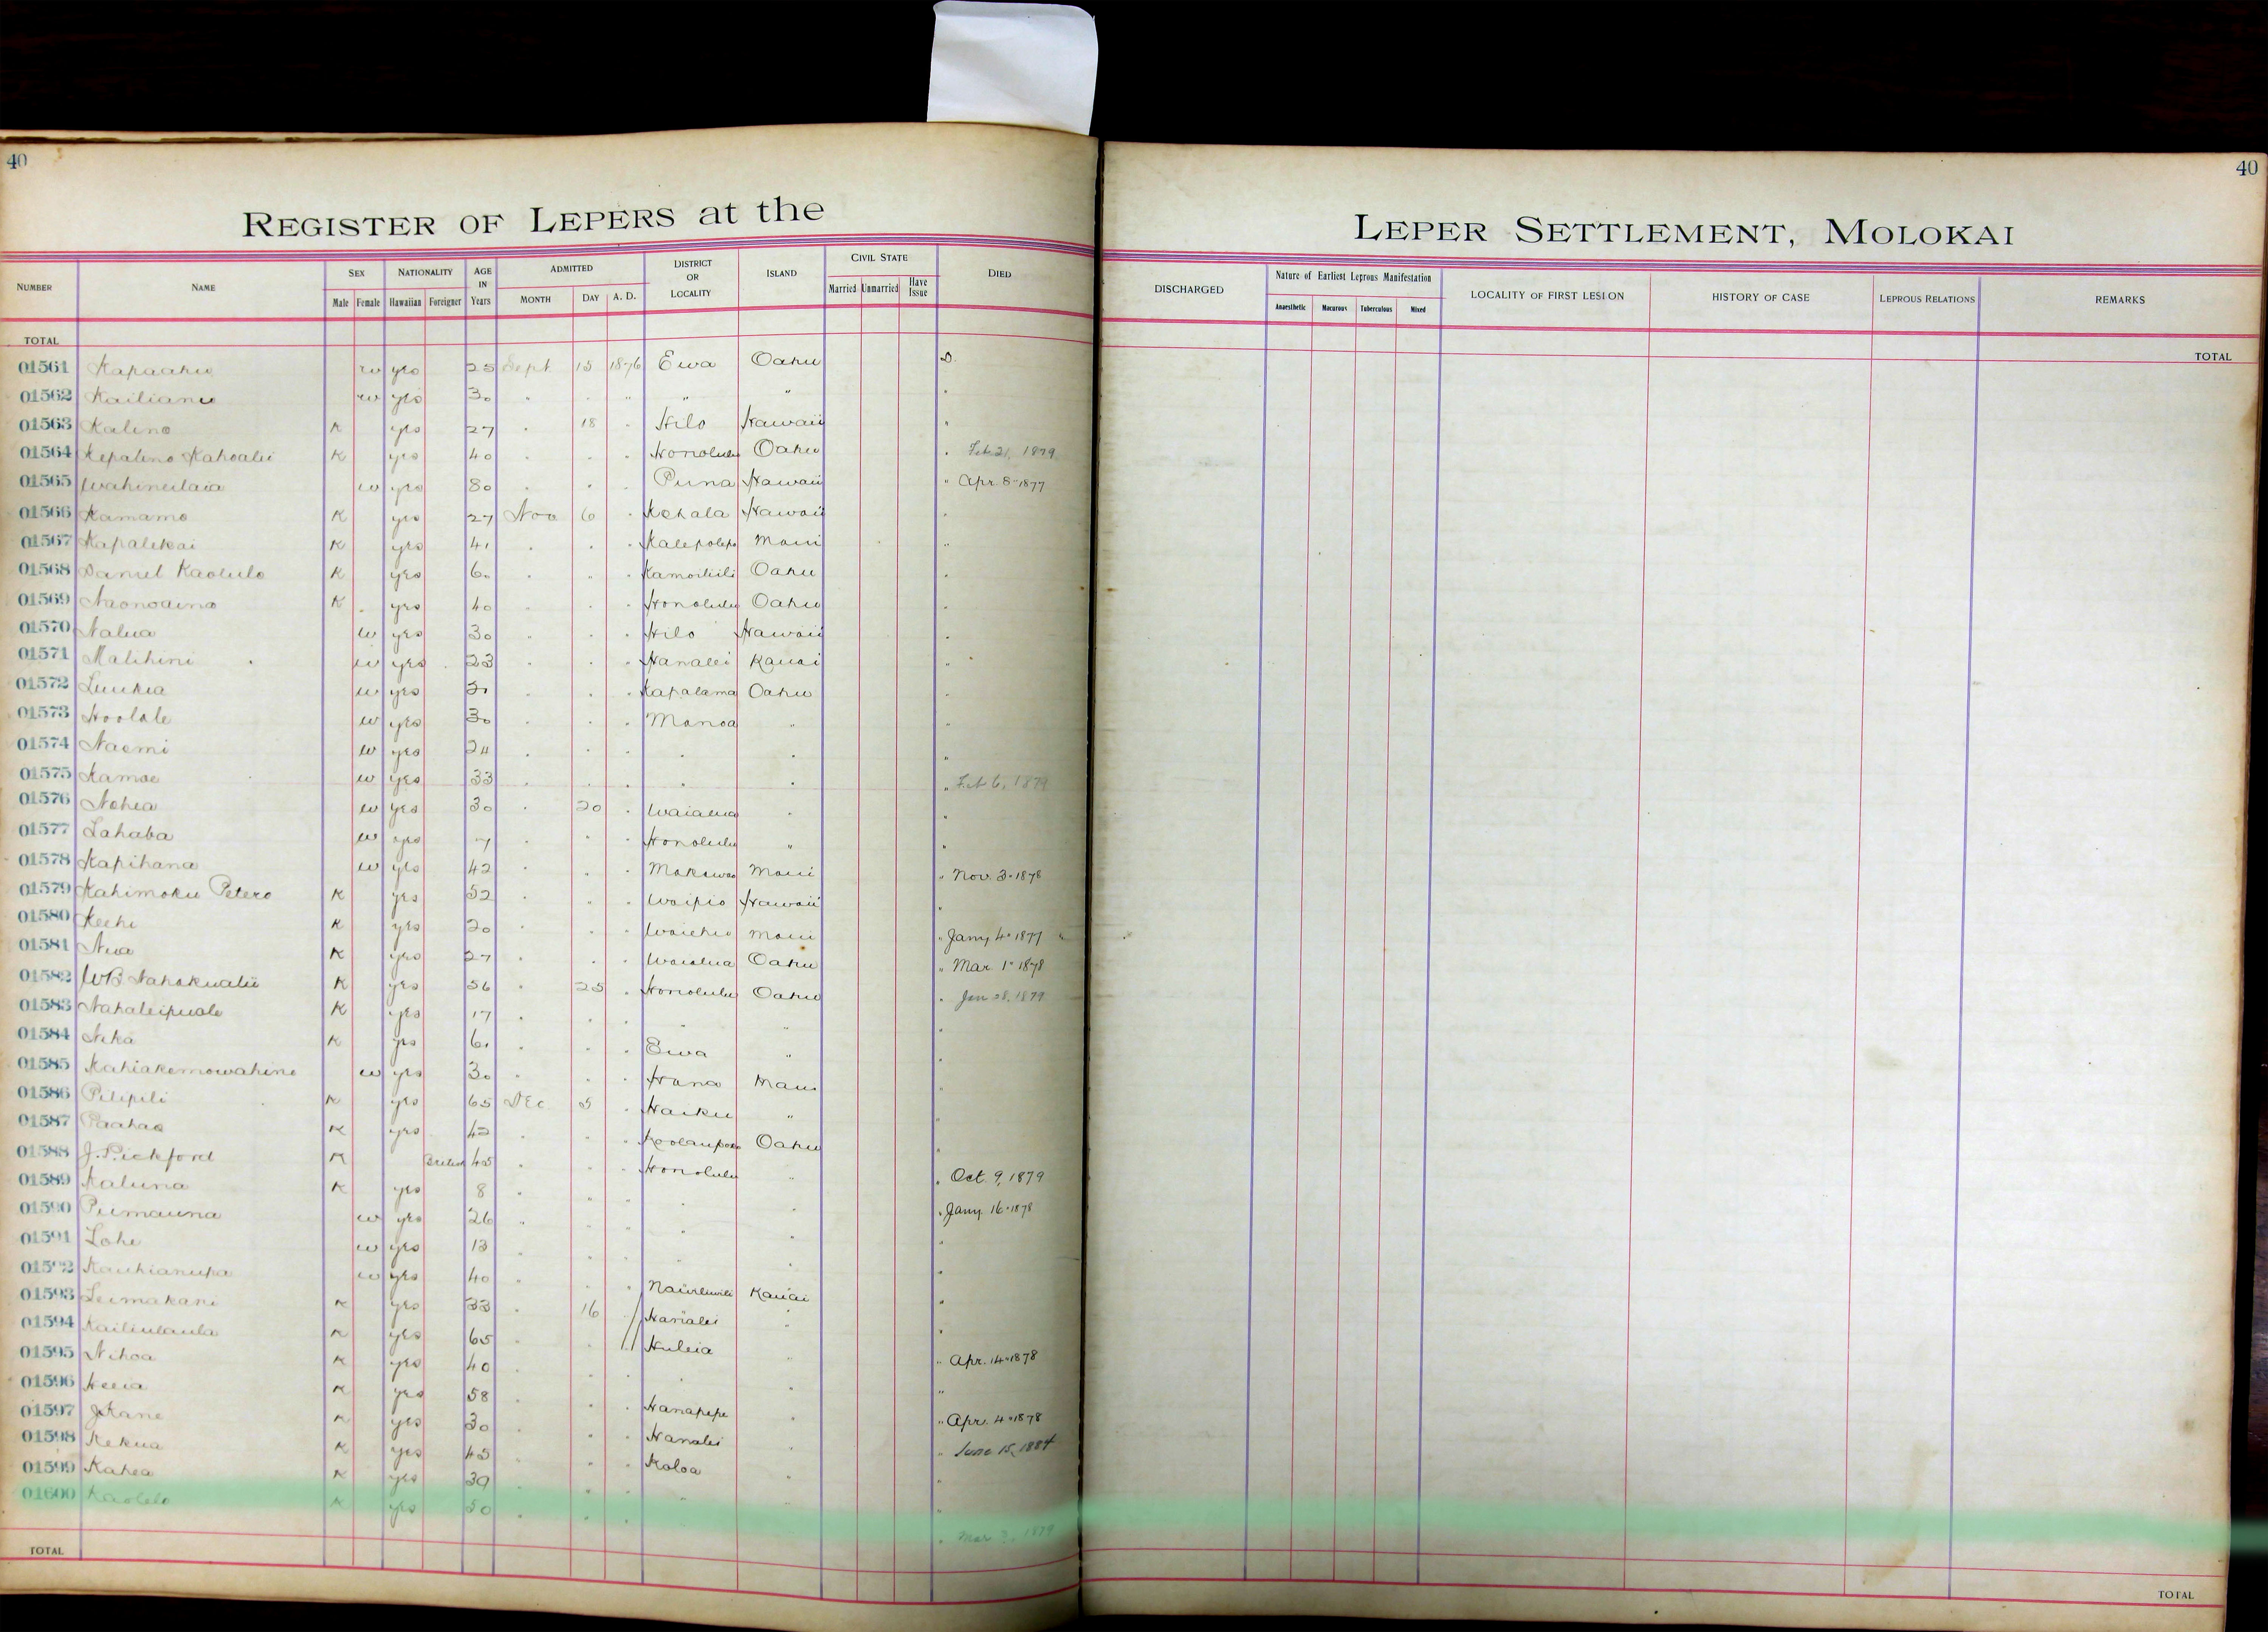 40
40
REGISTER OF LEPERS at the LEPER SETTLEMENT, MOLOKAI
NUMBER NAME SEX Male Female NATIONALITY Hawaiian Foreigner AGE IN Years ADMITTED MONTH DAY A. D. DISTRICT OR LOCALITY ISLAND CIVIL STATE Married Unmarried Have Issue DIED
DISCHARGED Nature of Earliest Leprous Manifestation Anaesthetic Macurous Tuberculous Mixed LOCALITY OF FIRST LESION HISTORY OF CASE LEPROUS RELATIONS REMARKS
TOTAL TOTAL
01561 Kapaahu w yes 25 Sept 15 1876 Ewa Oahu D.
01562 Kailianu w yes 30 " " " " " "
01563 Kalino K yes 27 " 18 " Hilo Hawaii "
01564 Kepalino Kahoalii K yes 40 " " " Honolulu Oahu " Feb 21, 1879
01565 Wahineilaia w yes 80 " " " Puna Hawaii " Apr. 8-1877
01566 Kamamo K yes 27 Nov 6 " Kohala Hawaii "
01567 Kapalekai K yes 41 " " " Kalepolepo Maui "
01568 Daniel Kaolulo K yes 60 " " " Kamoiliili Oahu "
01569 Naonoaina K yes 40 " " " Honolulu Oahu "
01570 Nalua w yes 30 " " " Hilo Hawaii "
01571 Malihini w yes 23 " " " Hanalei Kauai "
01572 Luukia w yes 21 " " " Kapalama Oahu "
01573 Hoolale w yes 30 " " " Manoa " "
01574 Naomi w yes 24 " " " " " "
01575 Kamae w yes 33 " " " " " " Feb 6, 1879
01576 Nohea w yes 30 " 20 " Waialua " "
01577 Lahaba w yes 7 " " " Honolulu " "
01578 Kapihana w yes 42 " " " Makawao Maui " Nov. 3-1878
01579 Kahimoku Petero K yes 52 " " " Waipio Hawaii "
01580 Keehi K yes 20 " " " Waiehu Maui " Jany 4-1877
01581 Niva K yes 27 " " " Waialua Oahu " Mar. 1-1878
01582 WB Nahakualii K yes 56 " 25 " Honolulu Oahu " Jan 28, 1879
01583 Nahaleipuole K yes 17 " " " " " "
01584 Nika K yes 61 " " " Ewa " "
01585 Kahiakemowahine w yes 30 " " " Hana Maui "
01586 Pilipili K yes 65 Dec 5 " Haiku " "
01587 Paahao K yes 42 " " " Koolaupoko Oahu "
01588 J. Pickford K British 45 " " " Honolulu " " Oct. 9, 1879
01589 Kaluna K yes 8 " " " " " " Jany 16-1878
01590 Puimauna w yes 26 " " " " " "
01591 Lohe w yes 13 " " " " " "
01592 Kauhianupa w yes 40 " " " Nawiliwili Kauai "
01593 Leimakani K yes 33 " 16 Hanalei " "
01594 Kailiulaula K yes 65 " " Huleia " " Apr. 14-1878
01595 Nihoa K yes 40 " " " " " "
01596 Heeia K yes 58 " " " Hanapepe " " Apr. 4-1878
01597 J Kane K yes 30 " " " Hanalei " " June 15, 1884
01598 Kekua K yes 45 " " " Koloa " "
01599 Kahea K yes 39 " " " " " "
01600 Kaolelo K yes 50 " " " " Mar 1879
TOTAL TOTAL